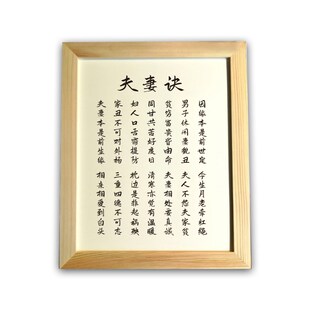 夫妻诀
因缘本是前世定 今生月老牵红绳
男子休闲妻貌丑 夫人不怨夫家贫
贫穷富贵皆由命 夫妻相处要真诚
同甘共苦好度日 清寒亦觉有温暖
妇人口舌需提防 枕边是非起祸殃
家丑不可对外扬 三重四德不可忘
夫妻本是前生缘 相亲相爱到白头